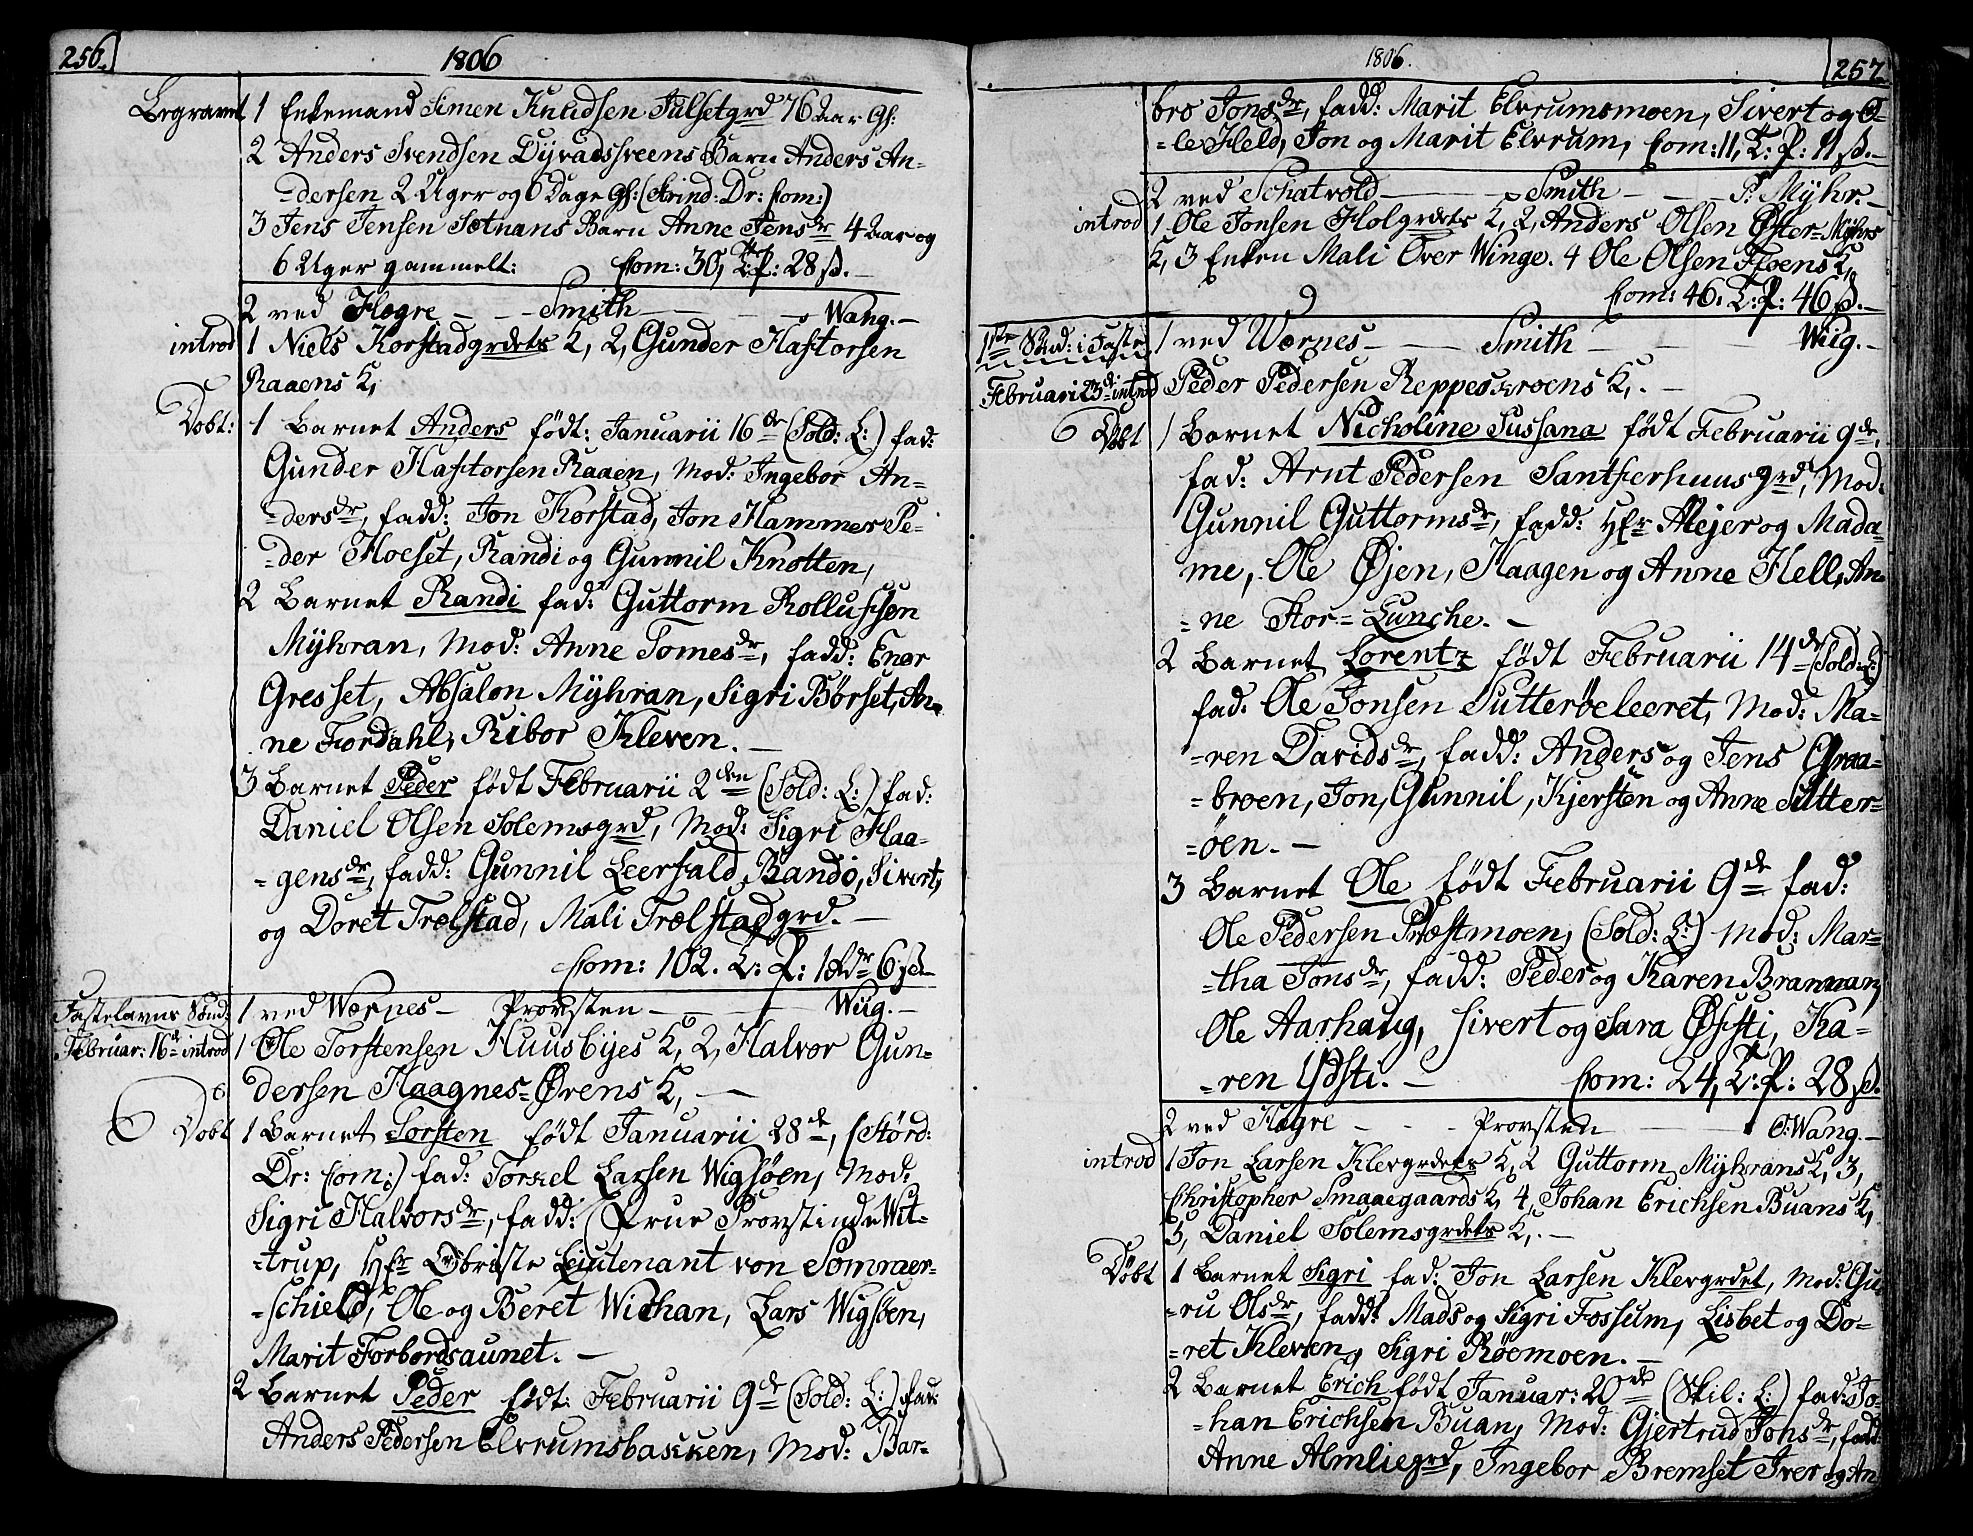 256.
1806
Begravet 1 Enkemand Simen Knudsen Julsetgrd 76 Aar Gl:
2 Anders Svendsen Dyvadssveens Barn Anders An-
-dersen 2 Uger og 6 Dage Gl: (Strind: Dr: Com:)
3 Jens Jensen Sotnans Barn Anne Jensdr 4 Aar og
6 Uger gammelt: Com: 30, T: P: 28 ß. —
2 ved Hegre - - - Smith - - - Wang. —
introd 1 Niels Korstadgrdets K, 2, Gunder Haftorsen
Raaens K,
Døbt: 1 Barnet Anders født: Januarii 16de (Sold: L:) fad:
Gunder Haftorsen Raaen, Mod: Ingebor An-
-dersdr, fadd: Jon Korstad, Jon Hammer Pe-
-der Hoeset, Randi og Gunnil Knotten,
2 Barnet Randi fad: Guttorm Rollufsen
Myhran, Mod: Anne Tomesdr, fadd: Ener
Gresset, Absalon Myhran, Sigri Børset, An-
ne Fordahl, Ribor Kleven. —
3 Barnet Peder født Februarii 2den (Sold: L:) fad:
Daniel Olsen Solemsgrd, Mod: Sigri Haa-
-gensdr, fadd: Gunnil Leerfald, Rando, Sivert,
og Doret Trælstad, Mali Trælstadgrd. —
Com: 102. T: P: 1 Rdr 6 ß —
Fastelavns Sönd: 1 ved Wærnes — Provsten — — Wiig. —
Februar: 16de introd 1 Ole Torstensen Huusbyes K, 2, Halvor Gun-
dersen Haagnes-Ørens K, —
Døbt 1 Barnet Torsten født Januarii 28de, (Störd:
Dr: Com:) fad: Torkel Larsen Wigsøen, Mod:
Sigri Halvorsdr, fadd: (Frue Provstinde Wit-
-trup, Hfr Obriste Lieutenant von Somraer-
-schield, Ole og Beret Wichan, Lars Wigsøen,
Marit Forbordsaunet. —
2 Barnet Peder født: Februarii 9de (Sold: L:) fad:
Anders Pedersen Elvrumsbakken, Mod: Bar-
1806.
257
bro Jonsdr, fadd: Marit Elvrumsmoen, Sivert og O-
-le Held, Jon og Marit Elvrum, Com: 11, T: P: 11 ß. —
2 ved Schatvold — — Smith — — P: Myhr. —
introd 1 Ole Jonsen Holgrdets K, 2, Anders Olsen Øster-Myhrs
K, 3 Enken Mali Over Winge. 4 Ole Olsen Moens K,
Com: 46. T: P: 46 ß. —
1ste Sönd: i Faste 1 ved Wærnes — — Smith — — Wiig. —
Februarii 23de introd Peder Pedersen Reppeskroens K,. —
Døbt 1 Barnet Nicholine Sussana født Februarii 9de,
fad: Arnt Pedersen Santferhuusgrd, Mod:
Gunnil Guttormsdr, fadd: Hfr Mejer og Mada-
me, Ole Øjen, Haagen og Anne Hell, An-
-ne Stor-Lunche. —
2 Barnet Lorentz født Februarii 14de (Sold: L:)
fad: Ole Jonsen Sutterøeleeret, Mod: Ma-
-ren Davidsdr, fadd: Anders og Jens Graa-
-broen, Jon, Gunnil, Kjersten og Anne Sutter-
-øen. —
3 Barnet Ole født Februarii 9de fad:
Ole Pedersen Præstmoen, (Sold: L:) Mod: Mar-
-tha Jonsdr, fadd: Peder og Karen Brannan,
Ole Aarhaug, Sivert og Sara Øfsti, Ka-
-ren Øfsti. — Com: 24, T: P: 28 ß.
2 ved Hegre - - - Provsten — — O: Wang. —
introd 1 Jon Larsen Klevgrdets K, 2 Guttorm Myhrans K, 3,
Christopher Smaaegaards K, 4, Johan Erichsen Buans K,
5, Daniel Solemsgrdets K,. —
Døbt 1 Barnet Sigri fad: Jon Larsen Klevgrdet, Mod: Gu-
-ru Olsdr, fadd: Mads og Sigri Fossum, Lisbet og Do-
-ret Kleven, Sigri Røemoen. —
2 Barnet Erich født Januar: 20de (Skil: L:) fad: Jo-
-han Erichsen Buan, Mod: Gjertrud Johsdr, fadd:
Anne Almliegrd, Ingebor Bremset Iver og An